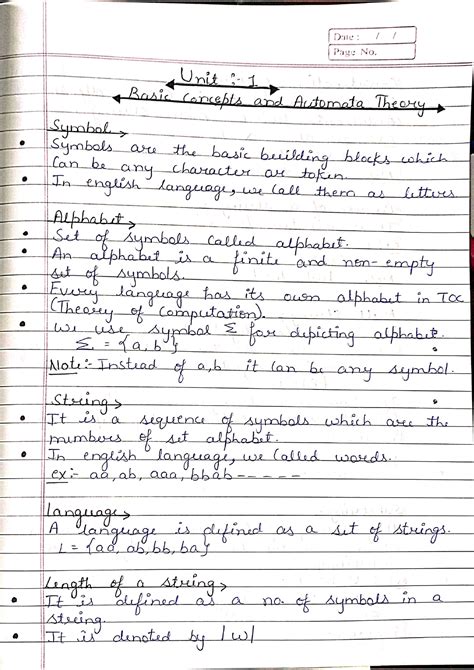 Date : / /
Page No.
Unit :- 1
Basic Concepts and Automata Theory
Symbol →
• Symbols are the basic building blocks which
Can be any character or token.
• In english language, we call them as letters
Alphabet →
• Set of symbols called alphabet.
• An alphabet is a finite and non-empty
set of symbols.
• Every language has its own alphabet in TOC
(Theory of Computation).
• We use symbol Σ for depicting alphabet.
Σ = {a, b}
Note:- Instead of a,b it can be any symbol.
String →
• It is a sequence of symbols which are the
numbers of set alphabet.
• In english language, we called words.
ex:- aa, ab, aaa, bbab - - - - -
language →
A language is defined as a set of strings.
L = {aa, ab, bb, ba}
Length of a string →
• It is defined as a no. of symbols in a
string.
• It is denoted by |w|